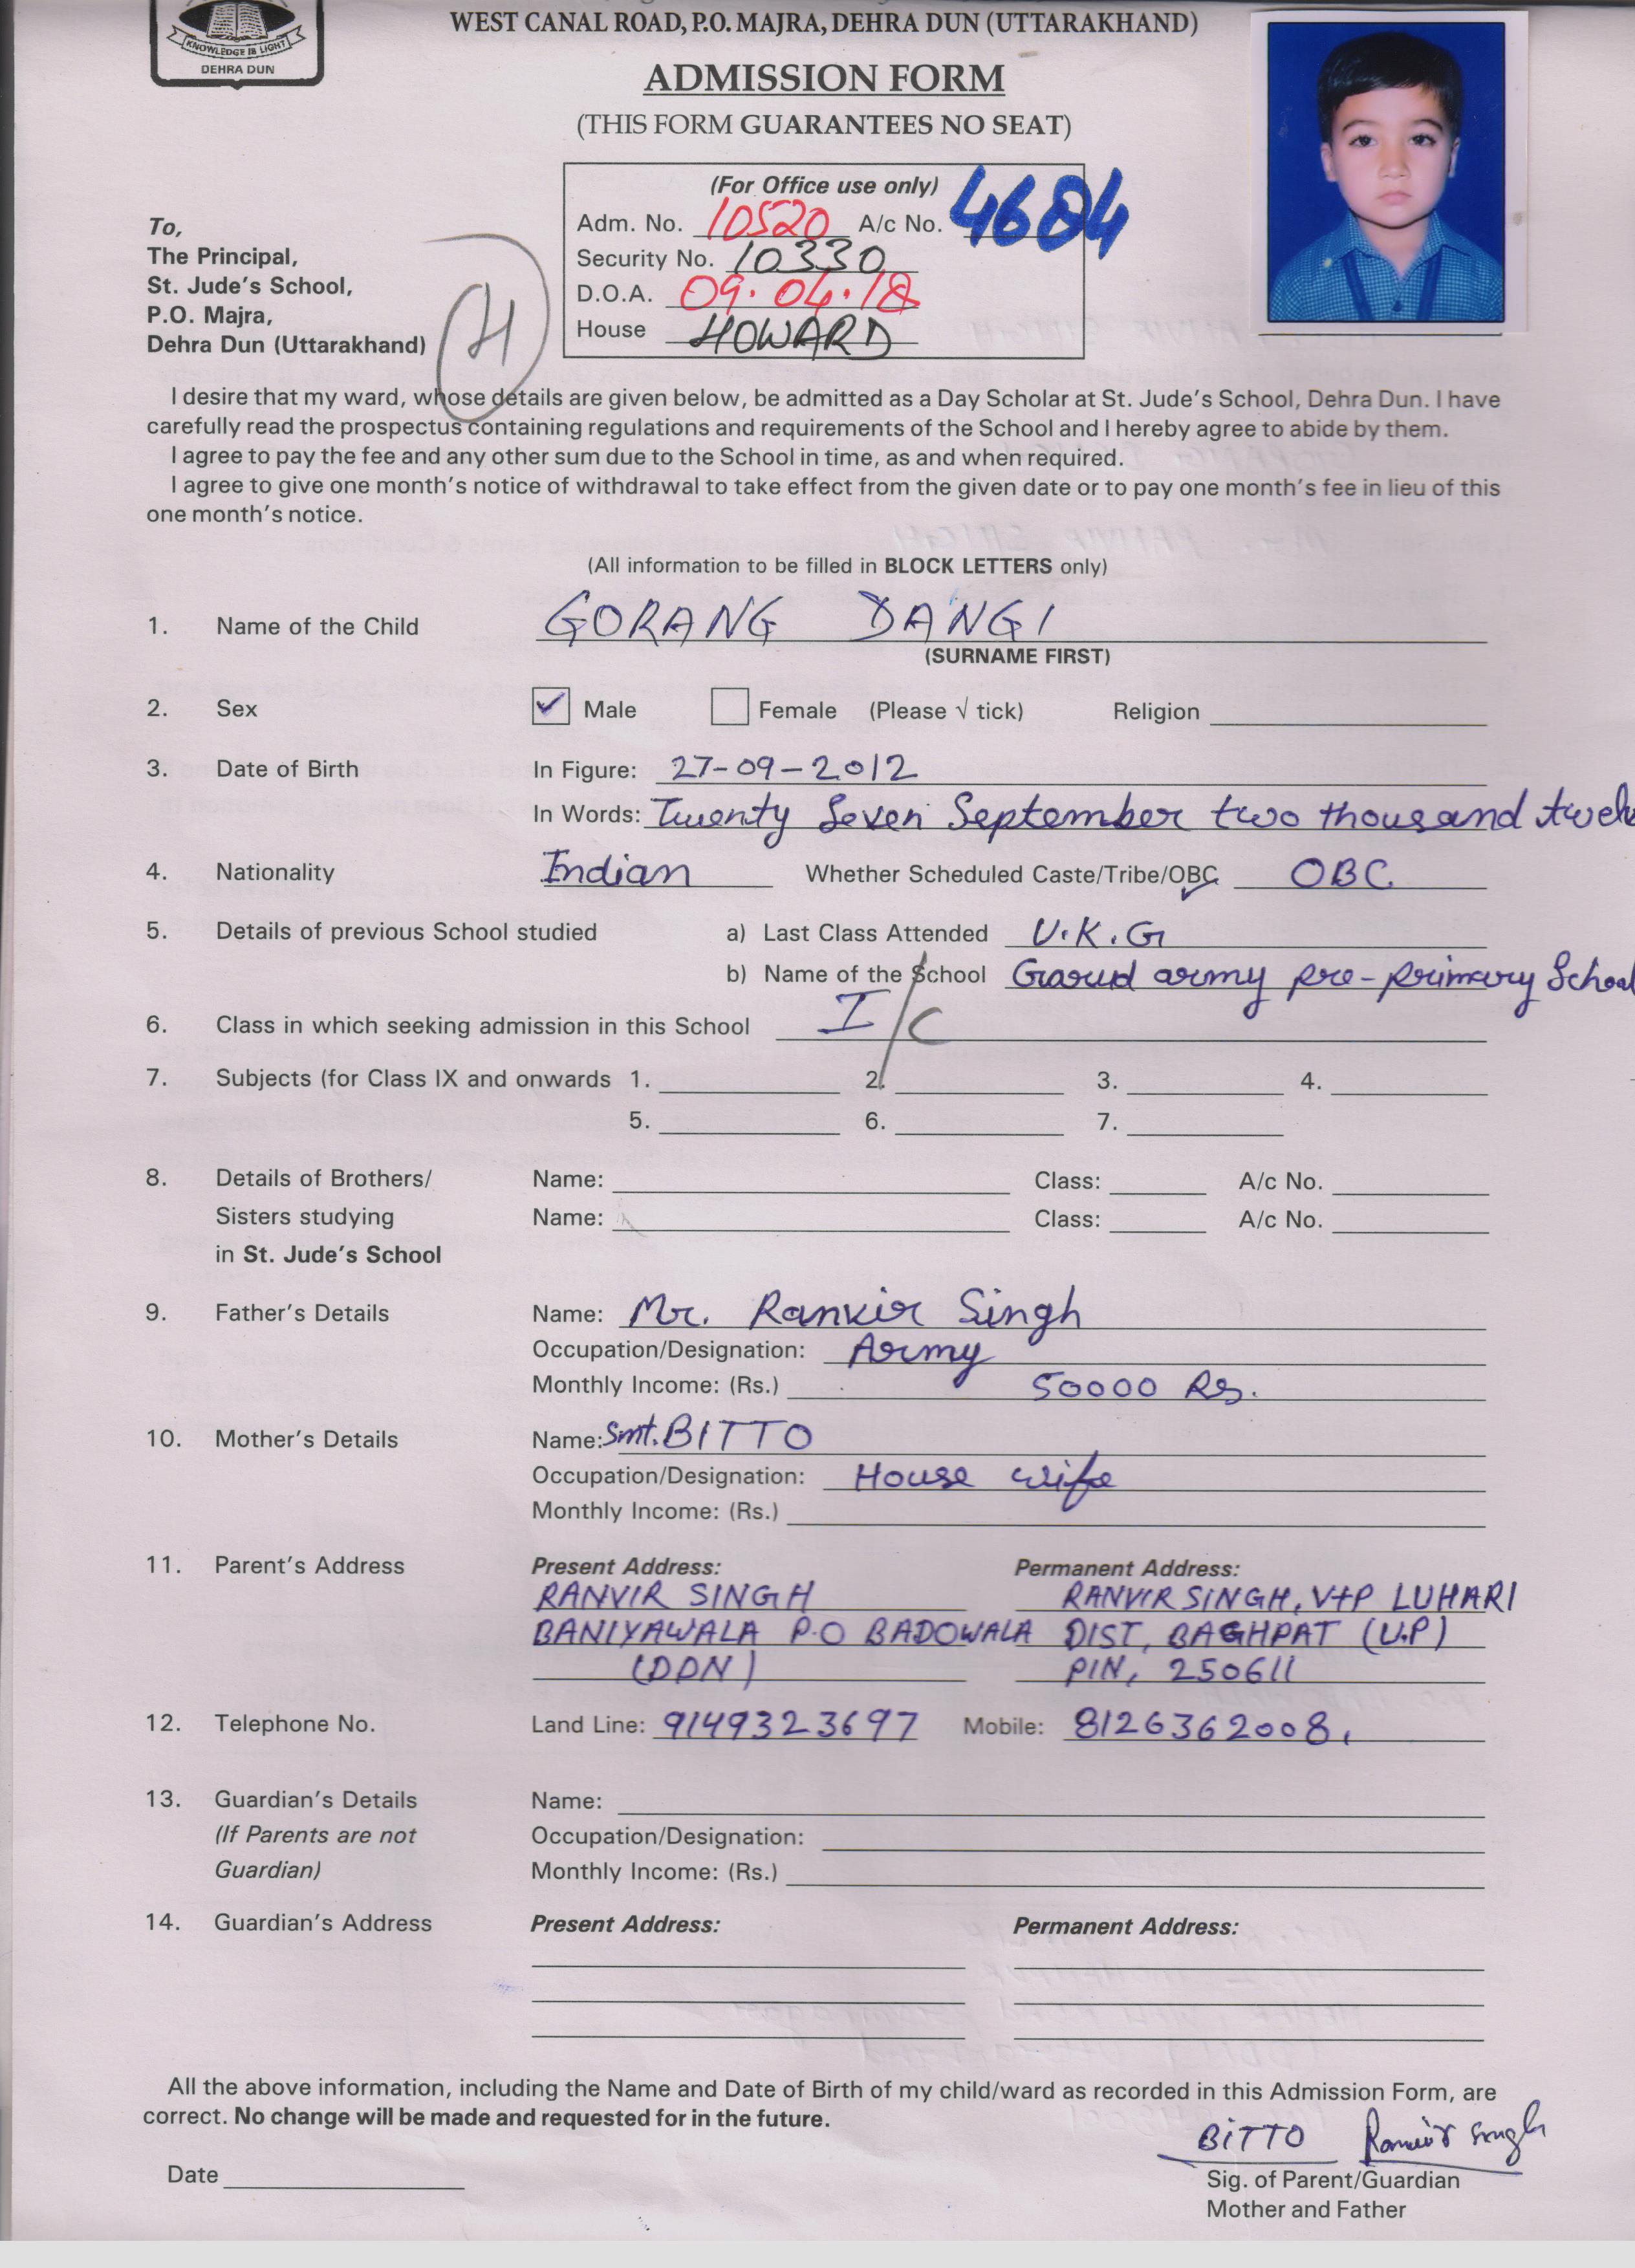 KNOWLEDGE IS LIGHT
DEHRA DUN
WEST CANAL ROAD, P.O. MAJRA, DEHRA DUN (UTTARAKHAND)
ADMISSION FORM
(THIS FORM GUARANTEES NO SEAT)
(For Office use only)
Adm. No. 10520 A/c No. 4684
Security No. 10330
D.O.A. 09.04.18
House HOWARD
To,
The Principal,
St. Jude's School,
P.O. Majra,
Dehra Dun (Uttarakhand)
H
I desire that my ward, whose details are given below, be admitted as a Day Scholar at St. Jude's School, Dehra Dun. I have
carefully read the prospectus containing regulations and requirements of the School and I hereby agree to abide by them.
I agree to pay the fee and any other sum due to the School in time, as and when required.
I agree to give one month's notice of withdrawal to take effect from the given date or to pay one month's fee in lieu of this
one month's notice.
(All information to be filled in BLOCK LETTERS only)
1. Name of the Child GORANG DANGI
(SURNAME FIRST)
2. Sex ✓ Male Female (Please √ tick) Religion
3. Date of Birth In Figure: 27-09-2012
In Words: Twenty Seven September two thousand twelv
4. Nationality Indian Whether Scheduled Caste/Tribe/OBC OBC
5. Details of previous School studied a) Last Class Attended U.K.G
b) Name of the School Garud army pre-primary School
6. Class in which seeking admission in this School I/C
7. Subjects (for Class IX and onwards 1. 2. 3. 4.
5. 6. 7.
8. Details of Brothers/ Name: Class: A/c No.
Sisters studying Name: Class: A/c No.
in St. Jude's School
9. Father's Details Name: Mr. Ranvir Singh
Occupation/Designation: Army
Monthly Income: (Rs.) 50000 Rs.
10. Mother's Details Name: Smt. BITTO
Occupation/Designation: House wife
Monthly Income: (Rs.)
11. Parent's Address Present Address: Permanent Address:
RANVIR SINGH RANVIR SINGH, V+P LUHARI
BANIYAWALA P.O BADOWALA DIST, BAGHPAT (U.P)
(DDN) PIN, 250611
12. Telephone No. Land Line: 9149323697 Mobile: 8126362008,
13. Guardian's Details Name:
(If Parents are not Occupation/Designation:
Guardian) Monthly Income: (Rs.)
14. Guardian's Address Present Address: Permanent Address:
All the above information, including the Name and Date of Birth of my child/ward as recorded in this Admission Form, are
correct. No change will be made and requested for in the future.
BiTTO Ranvir Singh
Date
Sig. of Parent/Guardian
Mother and Father